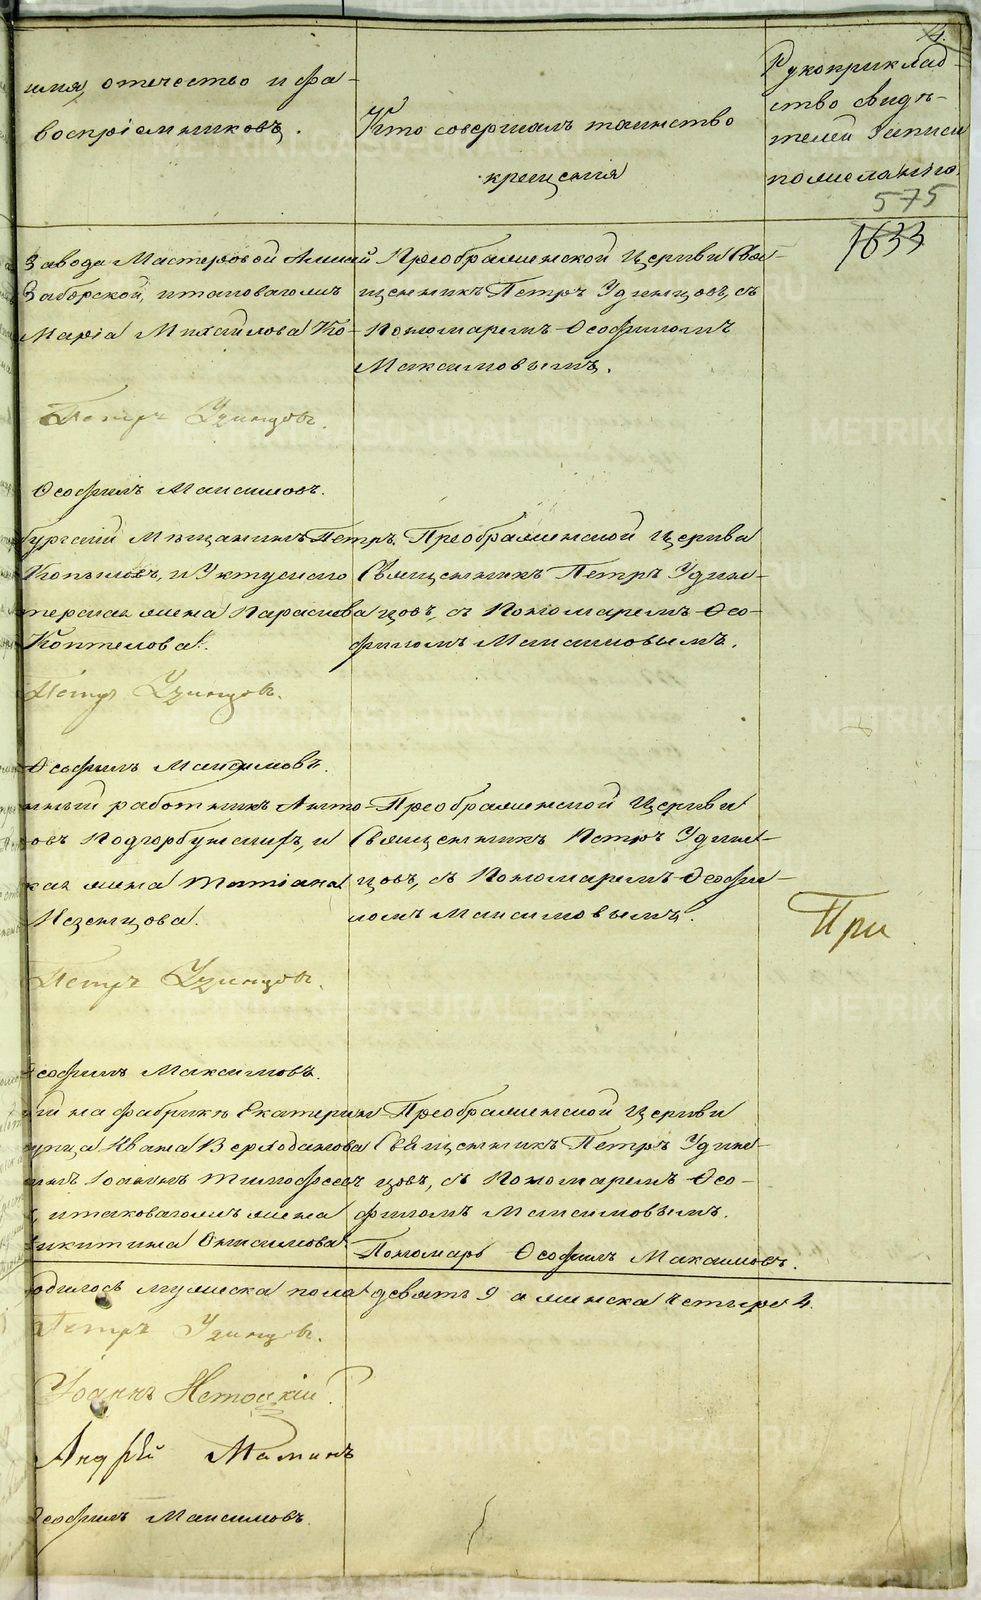 4.
имя, отечество и фа-
воспріемниковъ.
Кто совершалъ таинство
крещенія
Рукоприклад-
ство свидѣ-
телей записи
по желанію.
575
1633
Завода Мастеровой Алексѣй
Заборской, и таковагожъ
Марія Михайлова Ко-
Преображенской Церкви Свя-
щенникъ Петръ Удинцовъ, съ
Пономаремъ Ѳеофиломъ
Максимовымъ.
Петръ Удинцовъ.
Ѳеофилъ Максимовъ.
бургскій Мѣщанинъ Петръ
Копыловъ, и Уктусского
терская жена Параскова
Коптелова.
Преображенской Церкви
Священникъ Петръ Удин-
цовъ, съ Пономаремъ Ѳео-
филомъ Максимовымъ.
Петръ Удинцовъ.
Ѳеофилъ Максимовъ.
нный работникъ Анто-
овъ Подгорбунскихъ, и
кая жена Татіана
Незенцова.
Преображенской Церкви
Священникъ Петръ Удин-
цовъ, съ Пономаремъ Ѳеофи-
ломъ Максимовымъ.
При
Петръ Удинцовъ.
Ѳеофилъ Максимовъ.
ій на фабрикѣ Екатерин
купца Ивана Верходанова
Іоаннъ Тимофеевъ
и таковагожъ жена
Никитина Онисимова.
Преображенской Церкви
Священникъ Петръ Удин-
цовъ, съ Пономаремъ Ѳео-
филомъ Максимовымъ.
Пономарь Ѳеофилъ Максимовъ.
одилось мужеска пола девять 9 а женска четыре 4.
Петръ Удинцовъ.
Іоаннъ
Андрей Маминъ
Ѳеофилъ Максимовъ.
METRIKI.GASO-URAL.RU